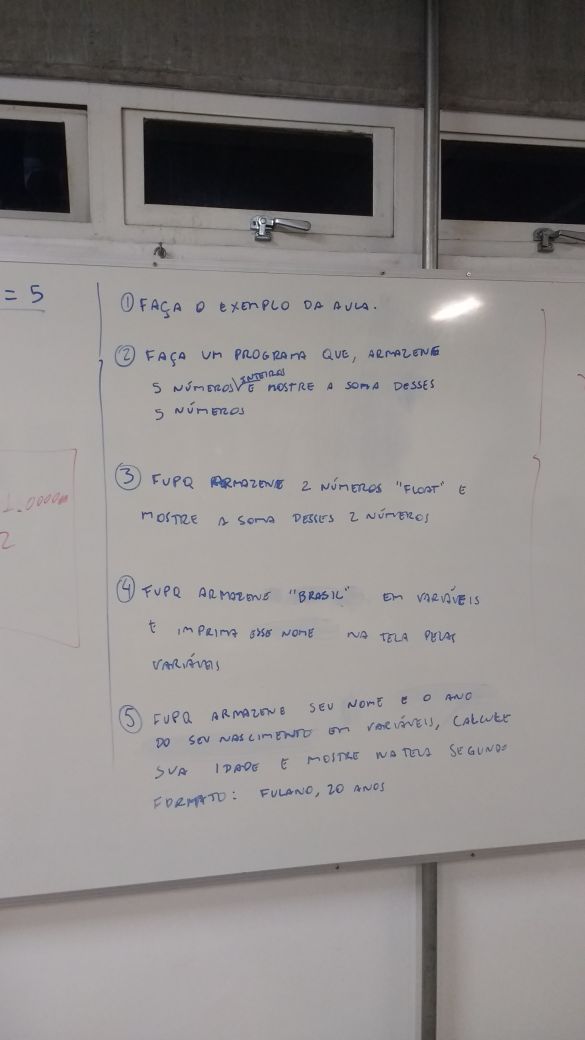 = 5
① FAÇA O EXEMPLO DA AULA.
② FAÇA UM PROGRAMA QUE, ARMAZENE
5 NÚMEROS INTEIROS E MOSTRE A SOMA DESSES
5 NÚMEROS
③ FUPQ ARMAZENE 2 NÚMEROS "FLOAT" E
MOSTRE A SOMA DESSES 2 NÚMEROS
1.0000
2
④ FUPQ ARMAZENE "BRASIL" EM VARIÁVEIS
E IMPRIMA ESSE NOME NA TELA PELAS
VARIÁVEIS
⑤ FUPQ ARMAZENE SEU NOME E O ANO
DO SEU NASCIMENTO EM VARIÁVEIS, CALCULE
SUA IDADE E MOSTRE NA TELA SEGUNDO
FORMATO: FULANO, 20 ANOS